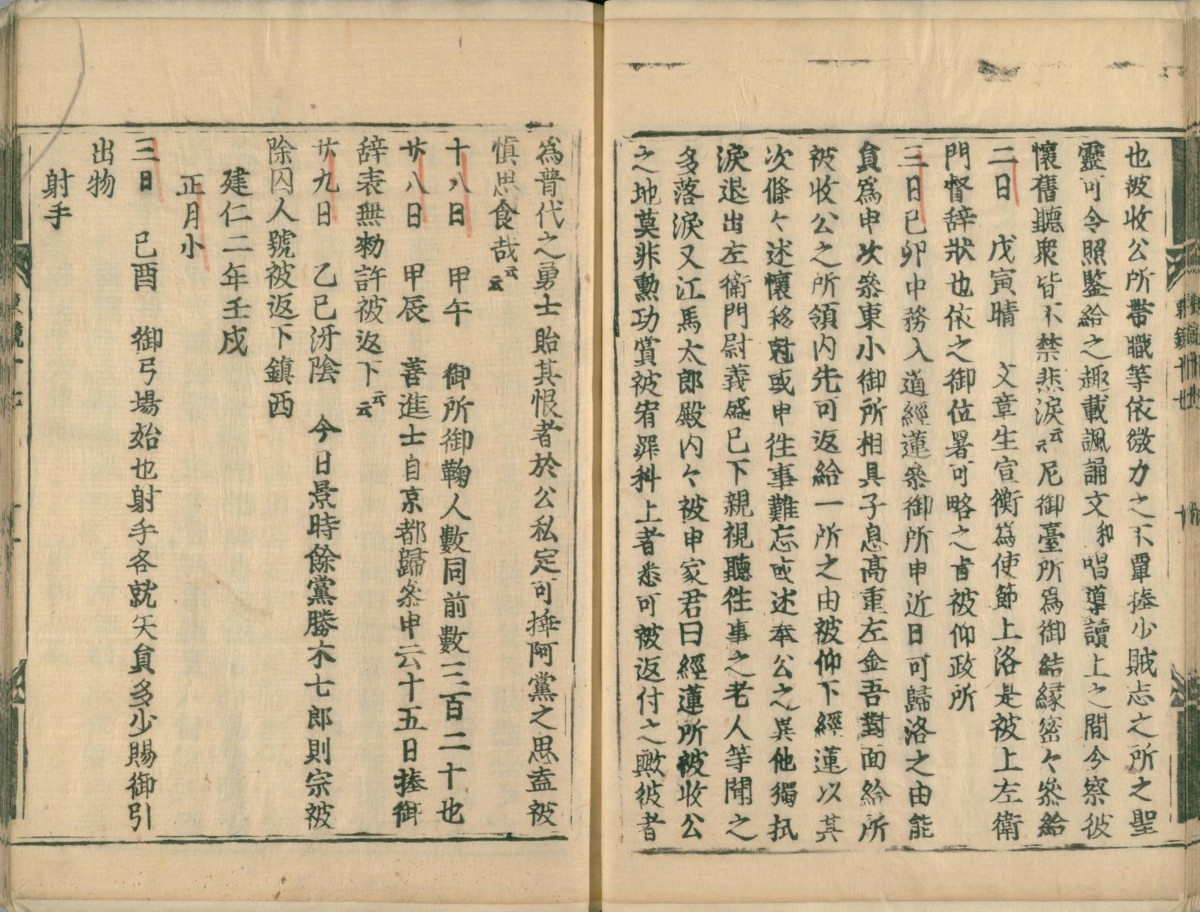 也被收公所帶職等依微力之不覃捧少賊志之所之聖
靈可令照鑒給之趣載諷誦文和唱導讀上之間今察彼
懷舊聽衆皆不禁悲淚云云尼御臺所爲御結縁密々參給
二日　戊寅晴　文章生宣衡爲使節上洛是被上左衛
門督辞狀也依之御位署可略之旨被仰政所
三日己卯中務入道經蓮參御所申近日可歸洛之由能
員爲申次參東小御所相具子息高重左金吾對面給所
被收公之所領內先可返給一所之由被仰下經蓮以其
次條々述懷移尅或申往事難忘或述奉公之異他獨拭
淚退出左衛門尉義盛已下親視聽往事之老人等聞之
多落淚又江馬太郎殿內々被申家君曰經蓮所被收公
之地莫非勲功賞被宥罪科上者悉可被返付之歟彼者
爲普代之勇士貽其恨者於公私定可捶阿黨之思盍被
愼思食哉云云
十八日　甲午　御所御鞠人數同前數三百二十也
廿八日　甲辰　善進士自京都歸參申云十五日捧御
辞表無勅許被返下云云
廿九日　乙巳汙陰　今日景時餘黨勝木七郎則宗被
除囚人號被返下鎮西
建仁二年壬戌
正月小
三日　己酉　御弓場始也射手各就矢員多少賜御引
出物
射手